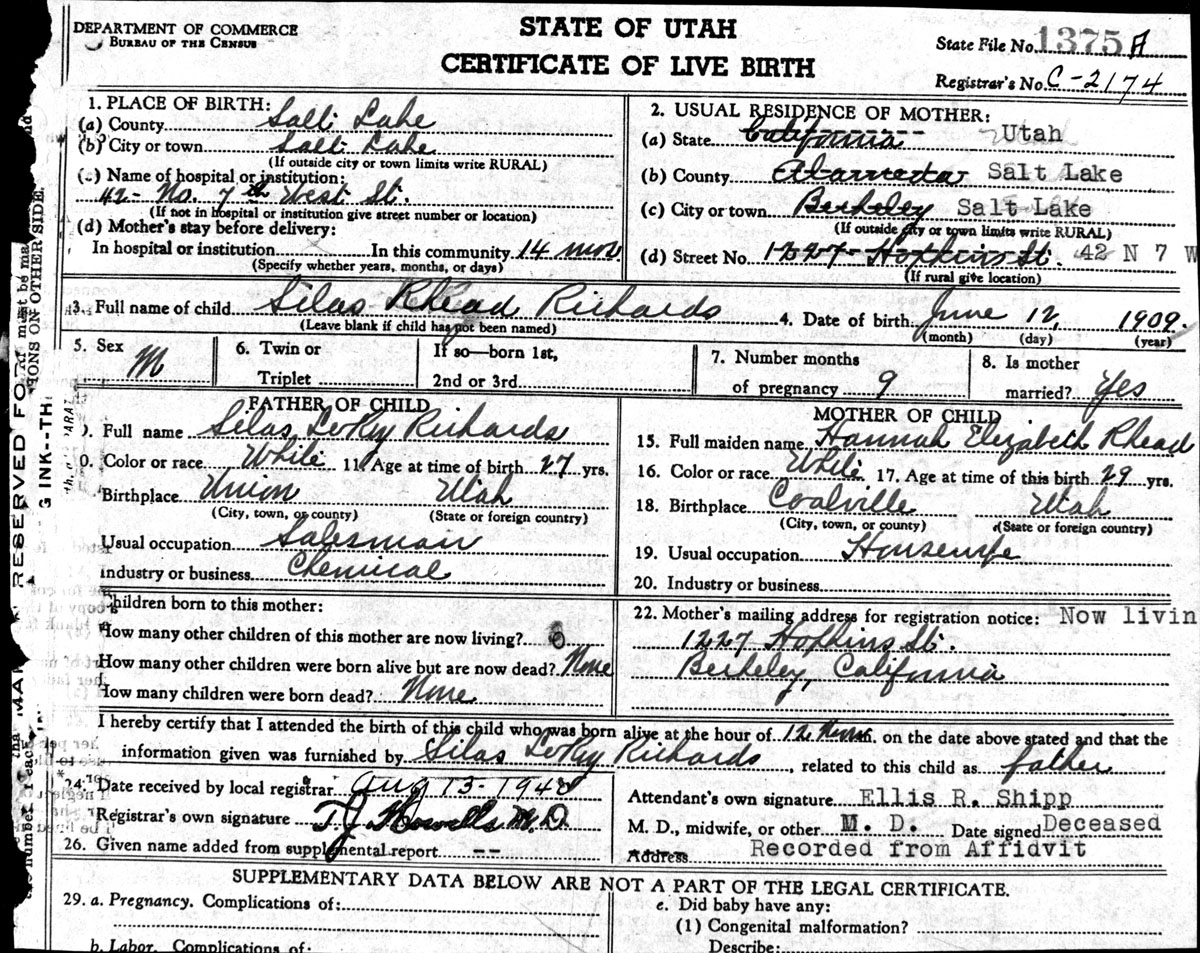 STATE OF UTAH
CERTIFICATE OF LIVE BIRTH
DEPARTMENT OF COMMERCE
BUREAU OF THE CENSUS
State File No. 1375 A
Registrar's No. C-2174
1. PLACE OF BIRTH:
(a) County Salt Lake
(b) City or town Salt Lake
(If outside city or town limits write RURAL)
(c) Name of hospital or institution:
42- No. 7th West St.
(If not in hospital or institution give street number or location)
(d) Mother's stay before delivery:
In hospital or institution In this community 14 mos.
(Specify whether years, months, or days)
2. USUAL RESIDENCE OF MOTHER:
(a) State California Utah
(b) County Alameda Salt Lake
(c) City or town Berkeley Salt Lake
(If outside city or town limits write RURAL)
(d) Street No. 1227 Hopkins St. 42 N 7 W
(If rural give location)
3. Full name of child Silas Rhead Richards
(Leave blank if child has not been named)
4. Date of birth June 12, 1909.
(month) (day) (year)
5. Sex M
6. Twin or
Triplet
If so—born 1st,
2nd or 3rd
7. Number months
of pregnancy 9
8. Is mother
married? Yes
FATHER OF CHILD
Full name Silas LeRoy Richards
0. Color or race White 11. Age at time of birth 27 yrs.
Birthplace Union Utah
(City, town, or county) (State or foreign country)
Usual occupation Salesman
Industry or business Chemical
MOTHER OF CHILD
15. Full maiden name Hannah Elizabeth Rhead
16. Color or race White 17. Age at time of this birth 29 yrs.
18. Birthplace Coalville Utah
(City, town, or county) (State or foreign country)
19. Usual occupation Housewife
20. Industry or business
Children born to this mother:
How many other children of this mother are now living?
How many other children were born alive but are now dead? None
How many children were born dead? None
22. Mother's mailing address for registration notice: Now livin
1227 Hopkins St.
Berkeley, California
I hereby certify that I attended the birth of this child who was born alive at the hour of 12 Noon on the date above stated and that the
information given was furnished by Silas LeRoy Richards, related to this child as father
24. Date received by local registrar Aug 13-1948
Registrar's own signature T J Howells M. D.
26. Given name added from supplemental report --
Attendant's own signature Ellis R. Shipp
M. D., midwife, or other M. D. Date signed Deceased
Address Recorded from Affidvit
SUPPLEMENTARY DATA BELOW ARE NOT A PART OF THE LEGAL CERTIFICATE.
29. a. Pregnancy. Complications of:
b. Labor. Complications of:
e. Did baby have any:
(1) Congenital malformation?
Describe:
RESERVED FO
G INK--TH
IONS ON OTHER SIDE.